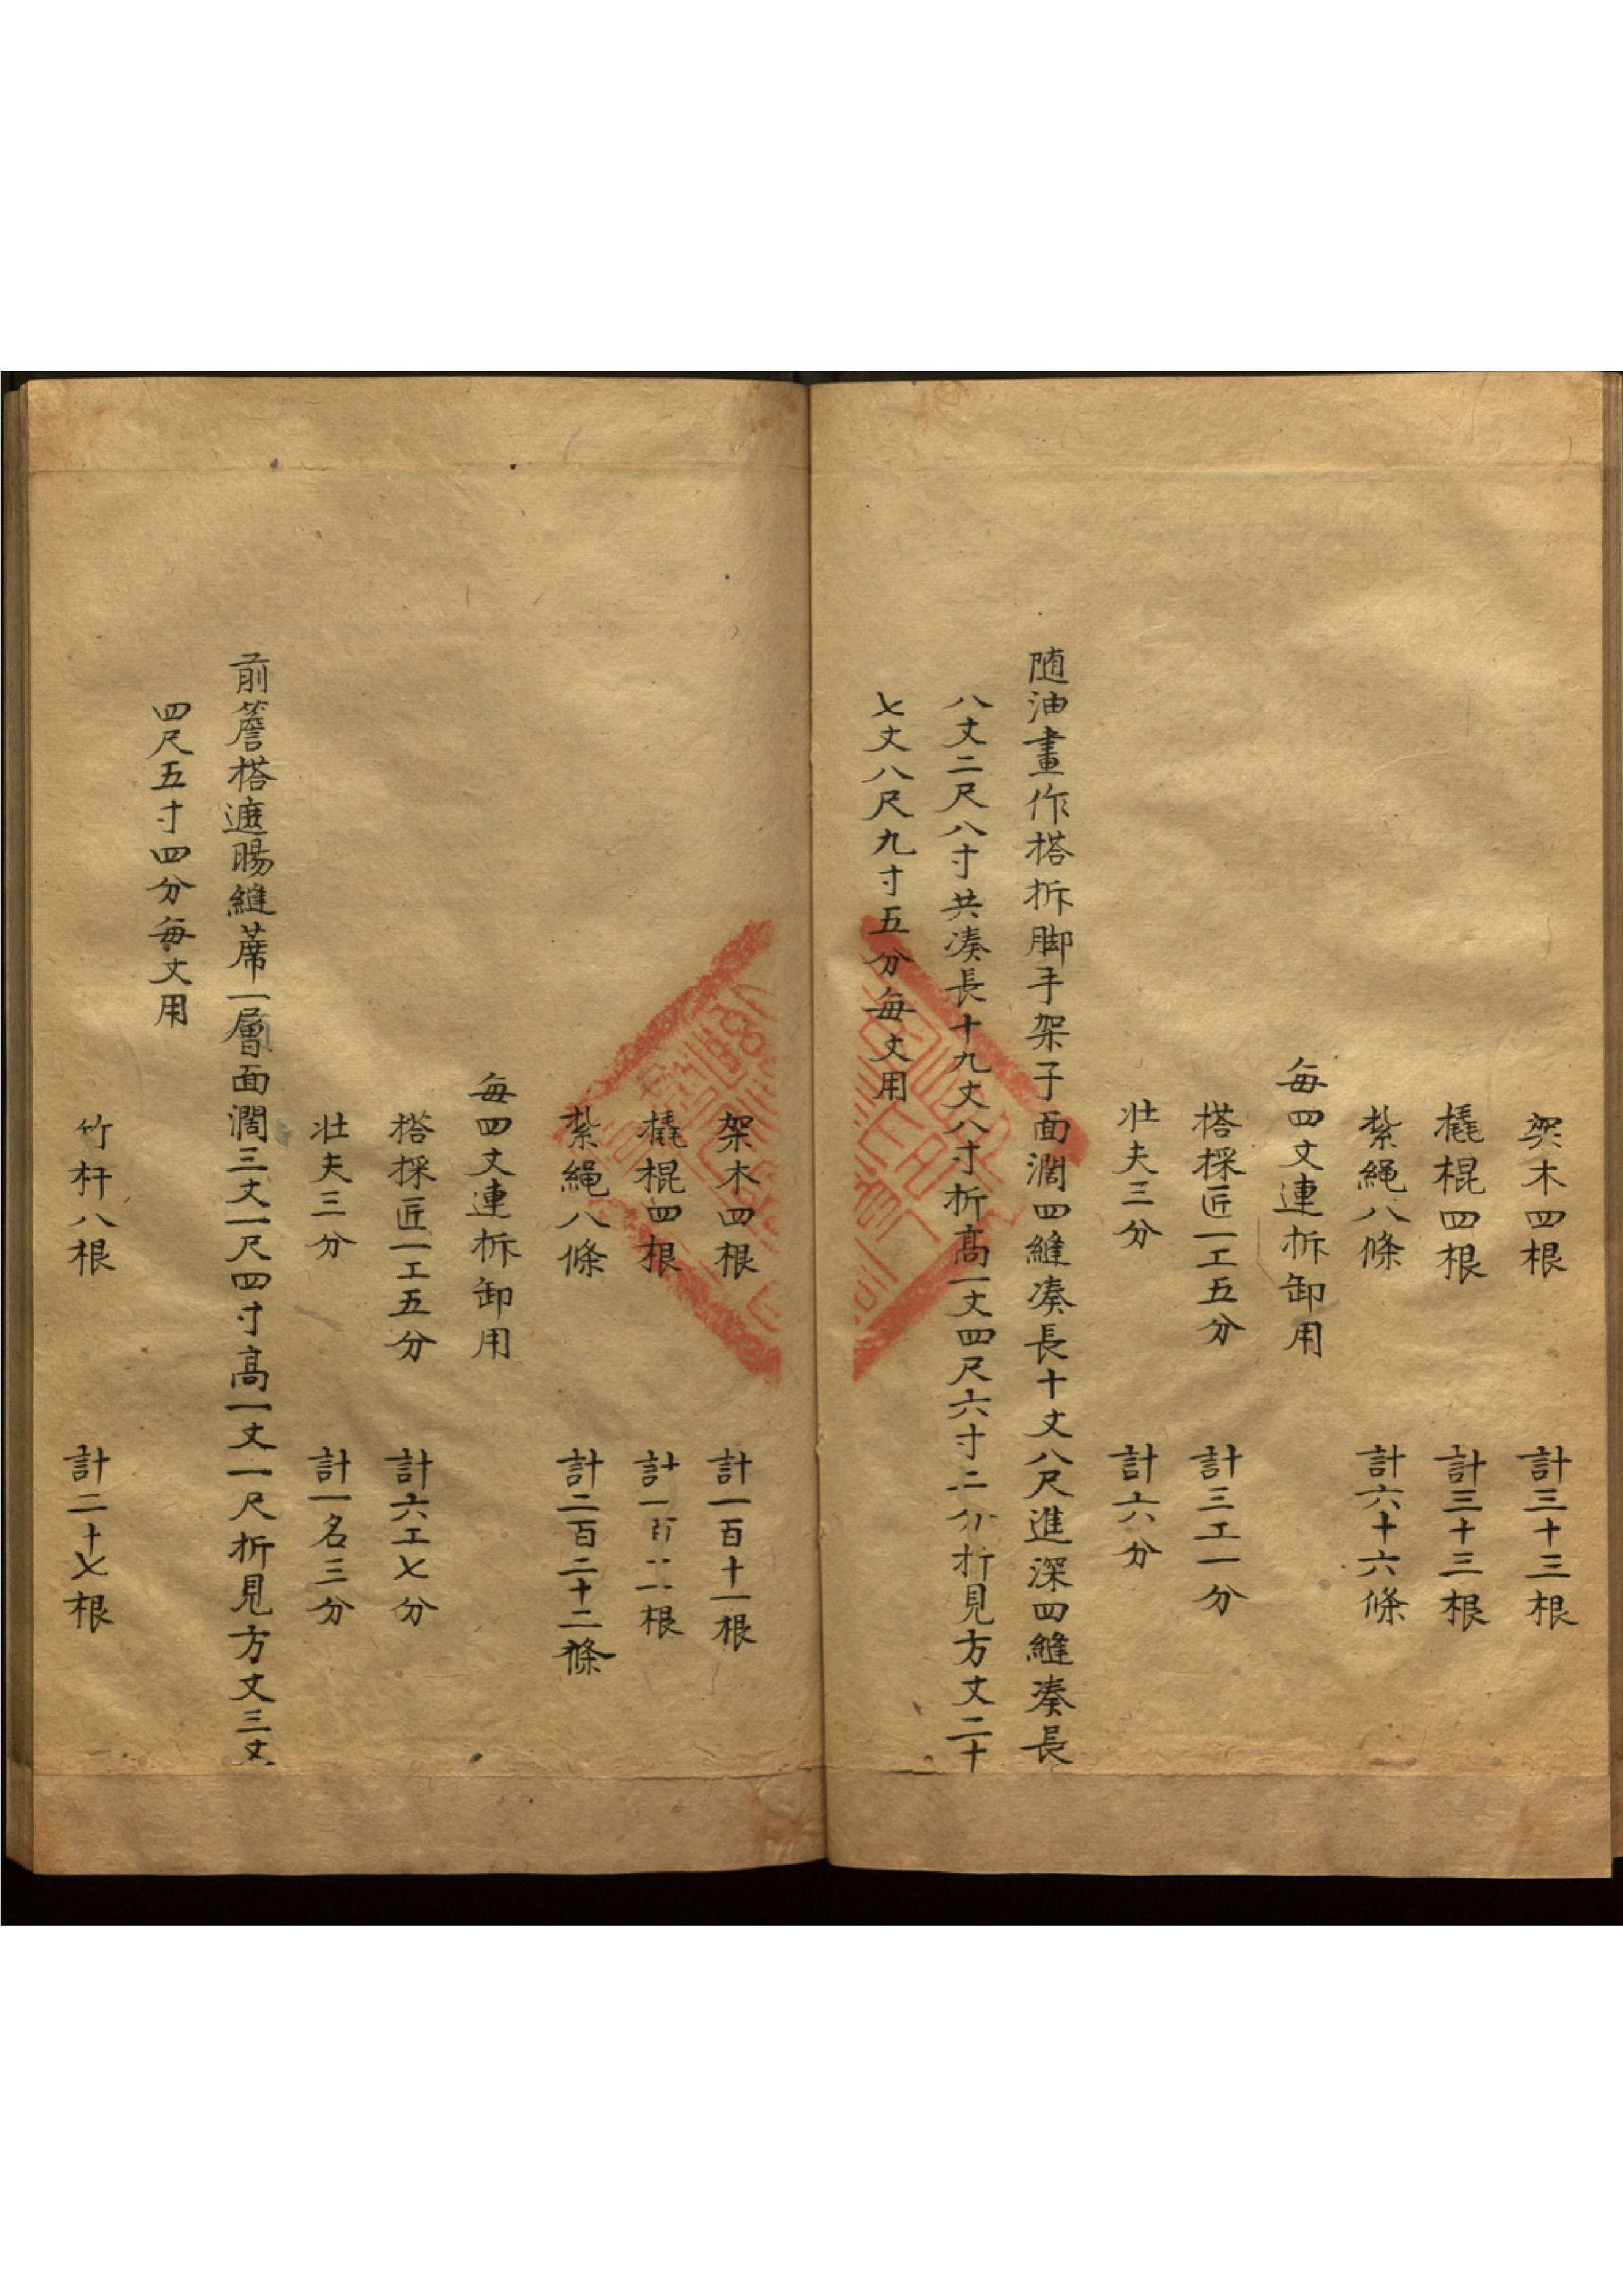 架木四根 計三十三根
橇棍四根 計三十三根
紮繩八條 計六十六條
每四丈連拆卸用
搭採匠一工五分 計三工一分
壮夫三分 計六分
随油畫作搭拆脚手架子面濶四縫凑長十丈八尺進深四縫凑長
八丈二尺八寸共凑長十九丈八寸折高一丈四尺六寸二分折見方丈二十
七丈八尺九寸五分每丈用
架木四根 計一百十一根
橇棍四根 計一百十一根
紮繩八條 計二百二十二條
每四丈連拆卸用
搭採匠一工五分 計六工七分
壮夫三分 計一名三分
前簷搭遮暘縫蓆一層面濶三丈一尺四寸高一丈一尺折見方丈三丈
四尺五寸四分每丈用
竹杆八根 計二十七根